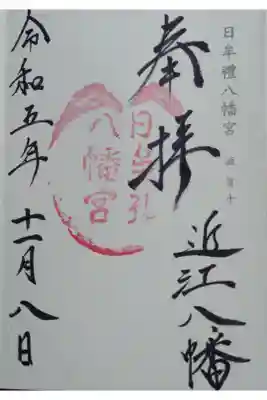 日牟禮八幡宮
奉拝
近江八幡
日牟礼
八幡宮
令和五年 十一月八日